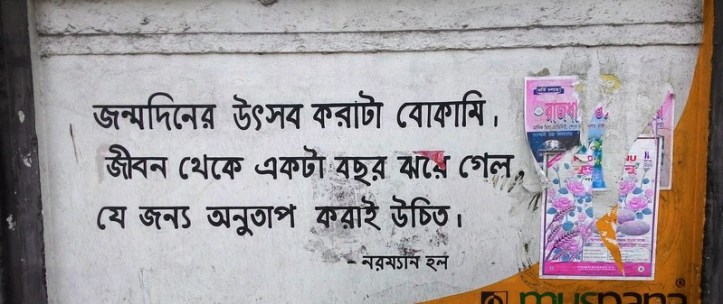 জন্মদিনের উৎসব করাটা বোকামি।
জীবন থেকে একটা বছর ঝরে গেল,
যে জন্য অনুতাপ করাই উচিত।
- নরম্যান হল